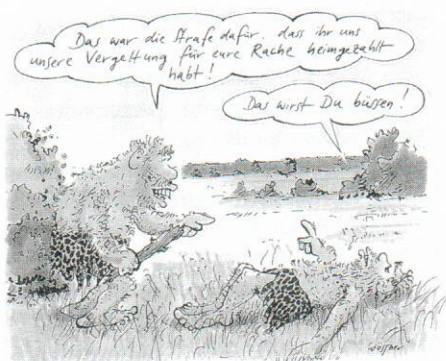 Das war die Strafe dafür, dass ihr uns
unsere Vergeltung für eure Rache heimgezahlt
habt!
Das wirst Du büssen!